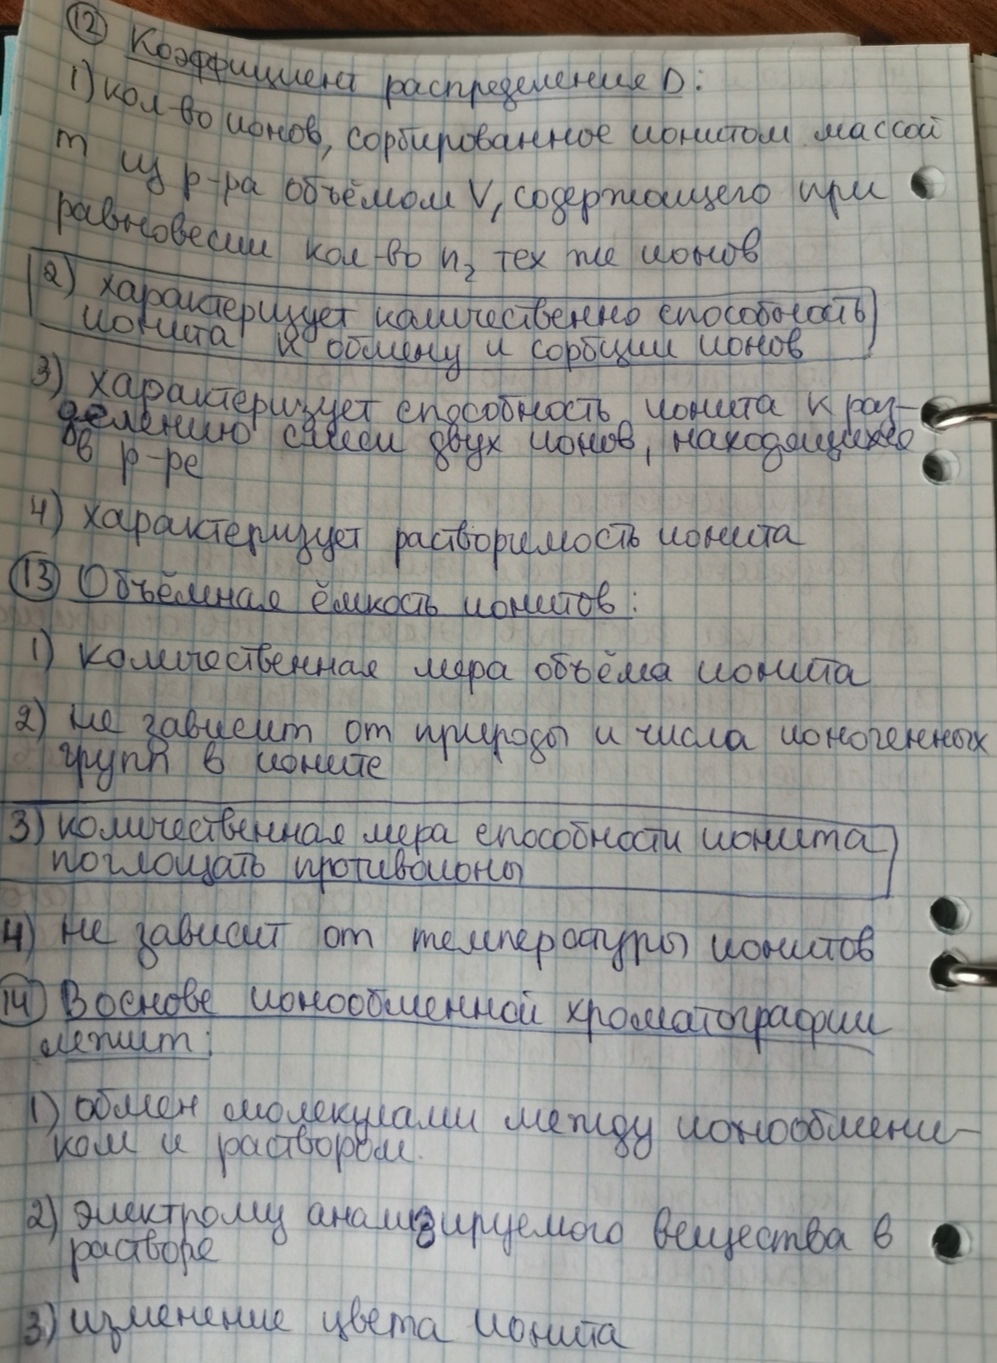 12 Коэффициент распределения D:
1) кол-во ионов, сорбированное ионитом массой
m из р-ра объёмом V, содержащего при
равновесии кол-во n₂ тех же ионов
2) характеризует количественно способность
ионита к обмену и сорбции ионов
3) характеризует способность ионита к раз-
делению смеси двух ионов, находящихся
в р-ре
4) характеризует растворимость ионита
13 Объёмная ёмкость ионитов:
1) количественная мера объёма ионита
2) не зависит от природы и числа ионогенных
групп в ионите
3) количественная мера способности ионита
поглощать противоионы
4) не зависит от температуры ионитов
14 В основе ионообменной хроматографии
лежит:
1) обмен молекулами между ионообменни-
ком и раствором.
2) электролиз анализируемого вещества в
растворе
3) изменение цвета ионита